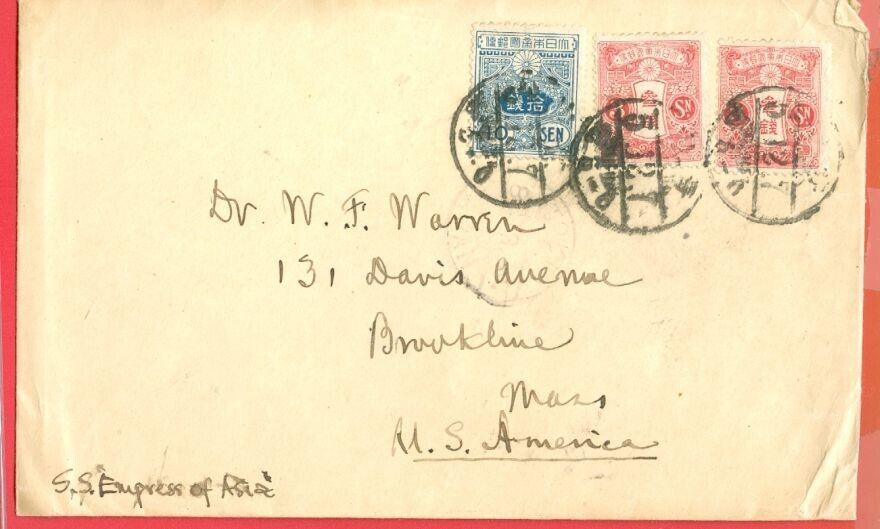 大日本帝國郵便
拾錢
10 SEN
大日本帝國郵便
3 SN
大日本帝國郵便
3 SN
Dr. W. F. Warren
131 Davis Avenue
Brookline
Mass
U.S. America
S.S. Empress of Asia